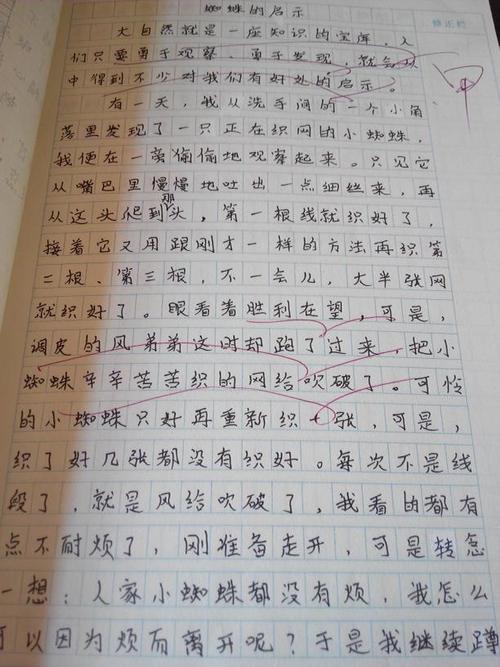 蜘蛛的启示
修正栏
大自然就是一座知识的宝库，人
们只要勇于观察、勇于发现，就会从
中得到不少对我们有好处的启示。
有一天，我从洗手间的一个小角
落里发现了一只正在织网的小蜘蛛，
我便在一旁偷偷地观察起来。只见它
从嘴巴里慢慢地吐出一点细丝来，再
从这头爬到那头，第一根线就织好了，
接着它又用跟刚才一样的方法再织第
二根、第三根，不一会儿，大半张网
就织好了。眼看着胜利在望，可是，
调皮的风弟弟这时却跑了过来，把小
蜘蛛辛辛苦苦织的网给吹破了。可怜
的小蜘蛛只好再重新织一张，可是，
织了好几张都没有织好。每次不是线
段了，就是风给吹破了，我看的都有
点不耐烦了，刚准备走开，可是转念
一想：人家小蜘蛛都没有烦，我怎么
可以因为烦而离开呢？于是我继续蹲